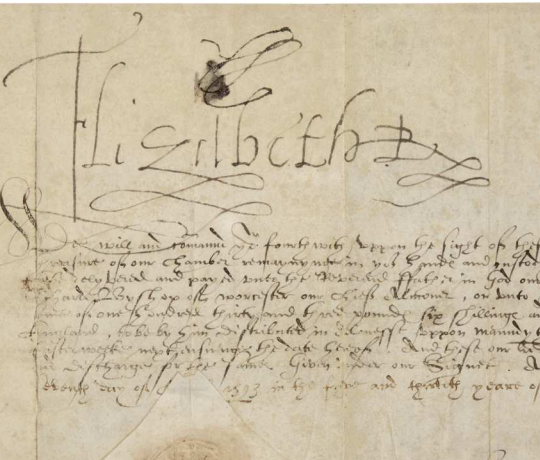 Elizabeth R
Wee will and comaund you fourthwith uppon the sight of thes
our Chamber remayninge in yor hands and custod
delyvered and payed unto the Reverend ffather in God our
Bysshop of Worcester our Chief Almoner, or unto
of one hundred thirty and three pounds six shillings a
England, to be by him distributed in Almesse uppon Maundy t
next ensuinge the date hereof. And these our
discharge for the same. Given under our Signet. A
day of 1593 in the five and thirtith yeare of